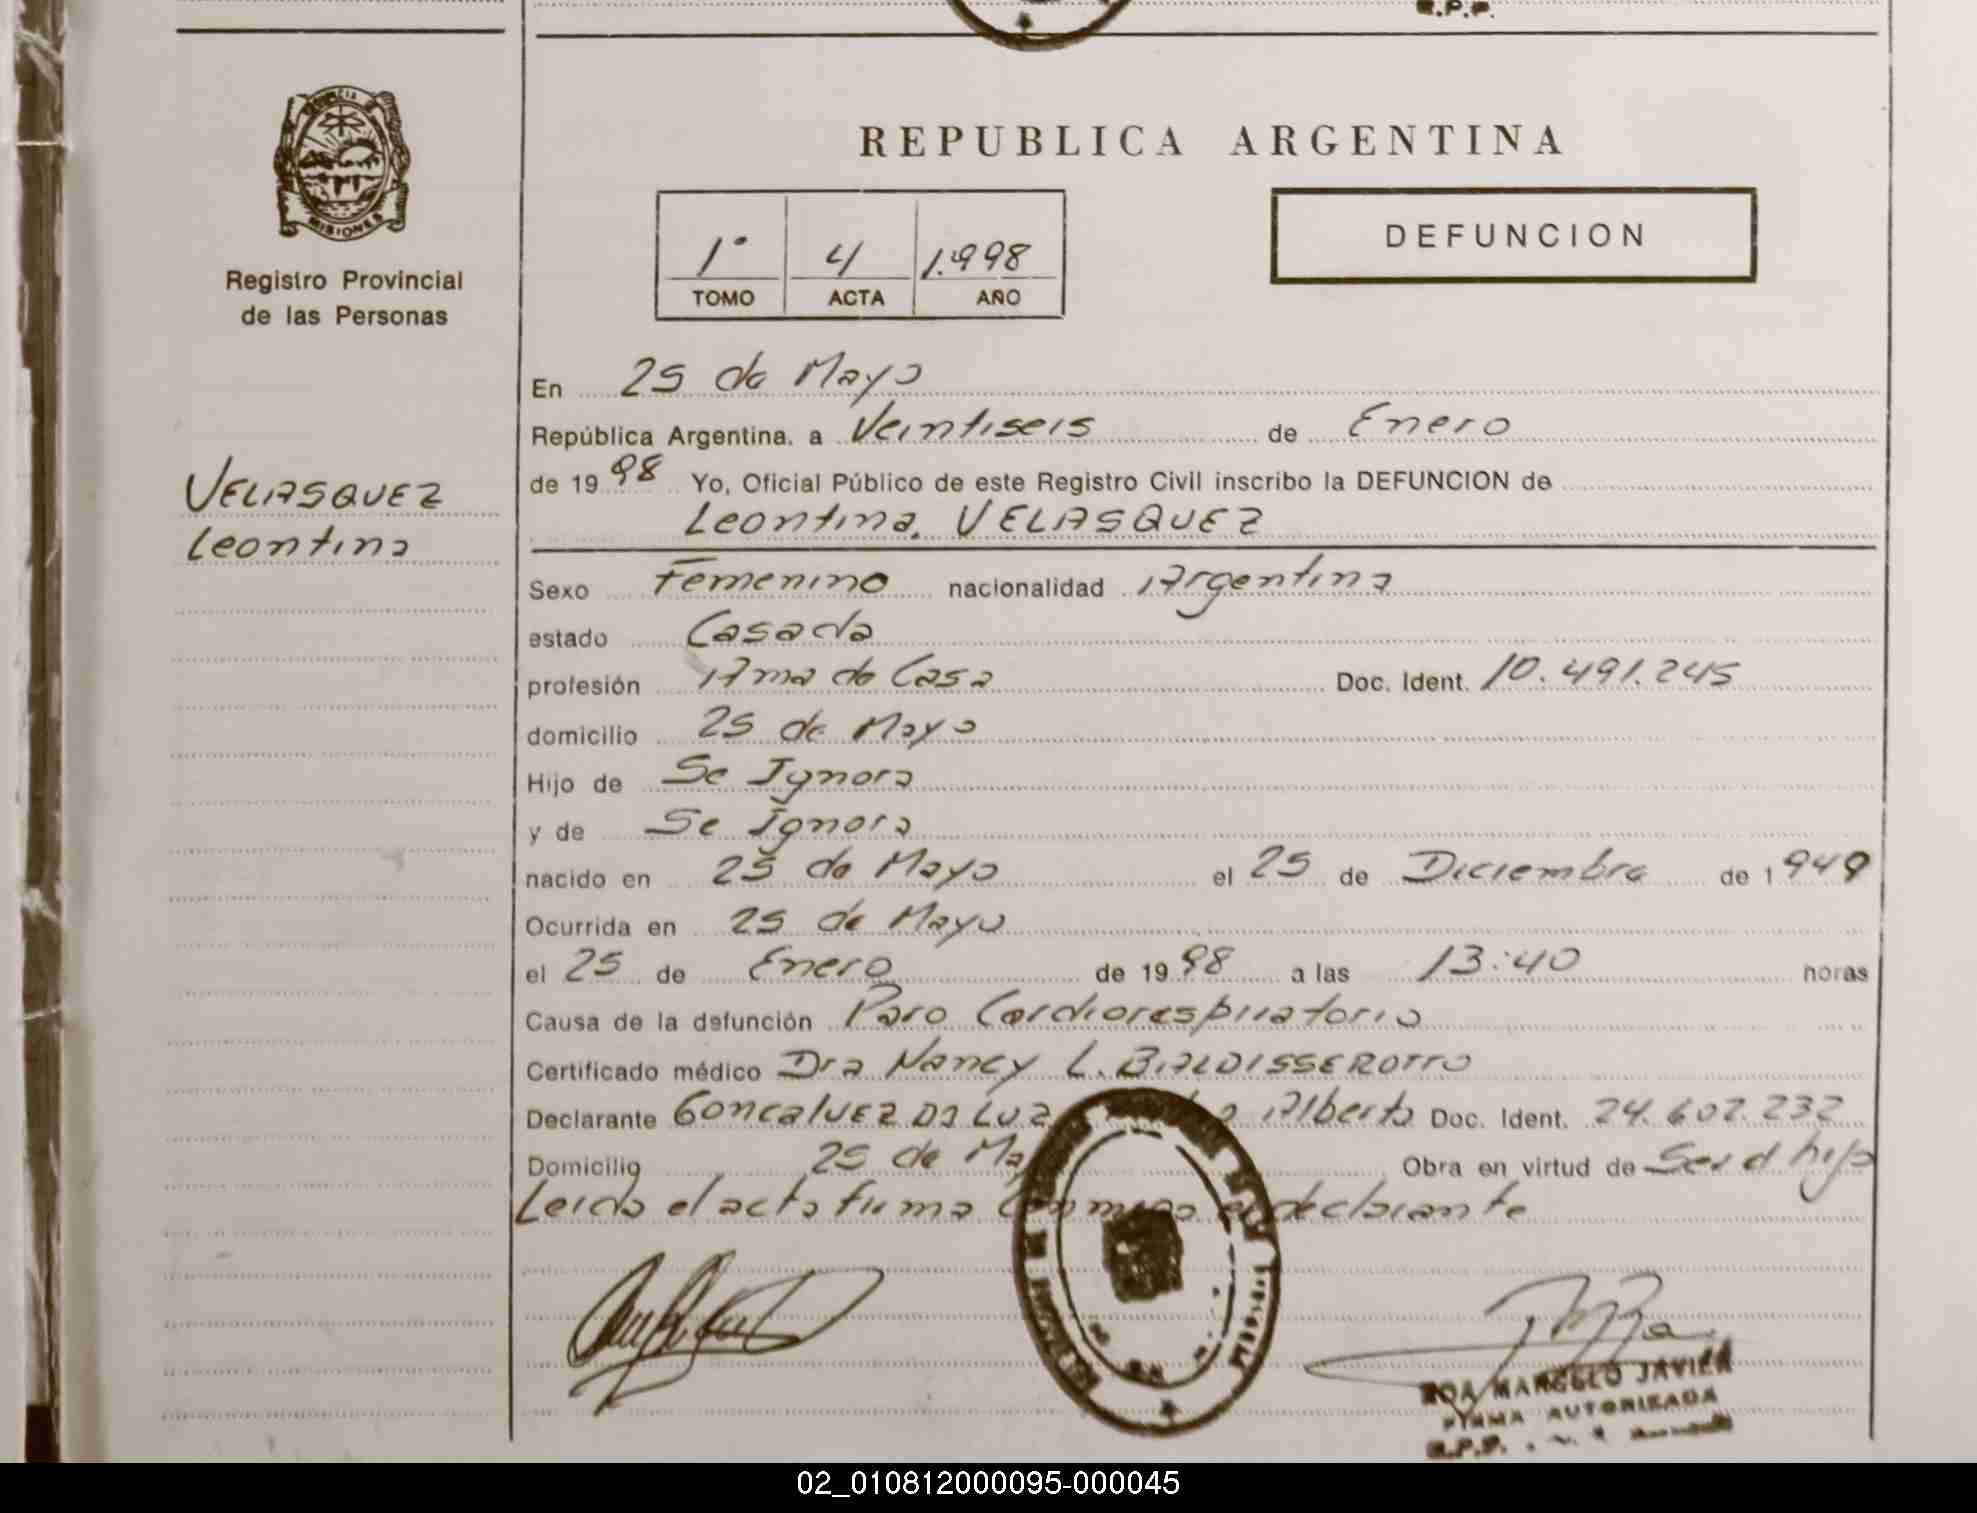 R.P.P.
PROVINCIA DE
MISIONES
Registro Provincial
de las Personas
VELASQUEZ
Leontina
REPUBLICA ARGENTINA
1° 4 1.998
TOMO ACTA AÑO
DEFUNCION
En 25 de Mayo
República Argentina, a Veintiseis de Enero
de 19 98 Yo, Oficial Público de este Registro Civil inscribo la DEFUNCION de
Leontina. VELASQUEZ
Sexo Femenino nacionalidad Argentina
estado Casada
profesión Ama de Casa Doc. Ident. 10.491.245
domicilio 25 de Mayo
Hijo de Se Ignora
y de Se Ignora
nacido en 25 de Mayo el 25 de Diciembre de 1949
Ocurrida en 25 de Mayo
el 25 de Enero de 19 98 a las 13:40 horas
Causa de la defunción Paro Cardiorespiratorio
Certificado médico Dra Nancy L. BALDISSEROTTO
Declarante GONCALVEZ DA LUZ Alberto Doc. Ident. 24.602.232
Domicilio 25 de Ma Obra en virtud de Ser el hijo
Leida el acta firma Conmigo el declarante
ROA MARCELO JAVIER
FIRMA AUTORIZADA
R.P.P.
02_010812000095-000045